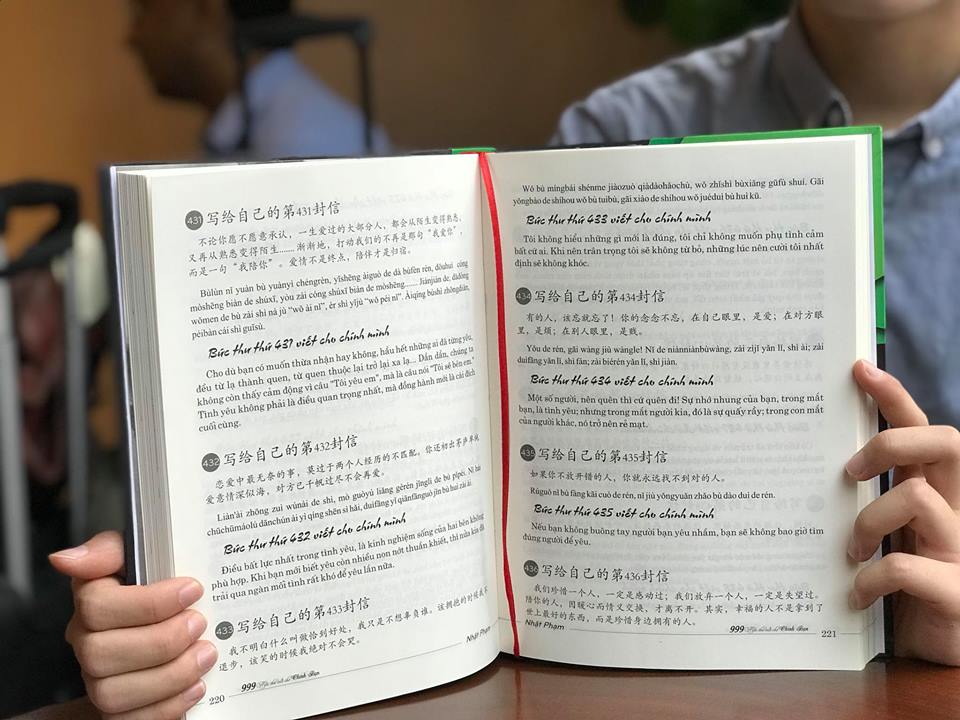 431 写给自己的第431封信
不论你愿不愿意承认，一生爱过的大部分人，都会从陌生变得熟悉，
又再从熟悉变得陌生……渐渐地，打动我们的不再是那句“我爱你”，
而是一句“我陪你”。爱情不是终点，陪伴才是归宿。
Bùlùn nǐ yuàn bù yuànyì chéngrèn, yīshēng àiguò de dà bùfèn rén, dōuhuì cóng
mòshēng biàn de shúxī, yòu zài cóng shúxī biàn de mòshēng...... Jiànjiàn de, dǎdòng
wǒmen de bù zài shì nà jù “wǒ ài nǐ”, ér shì yījù “wǒ péi nǐ”. Àiqíng bùshì zhōngdiǎn,
péibàn cái shì guīsù.
Bức thư thứ 431 viết cho chính mình
Cho dù bạn có muốn thừa nhận hay không, hầu hết những ai đã từng yêu,
đều từ lạ thành quen, từ quen thuộc lại trở lại xa lạ... Dần dần, chúng ta
không còn thấy cảm động vì câu "Tôi yêu em", mà là câu nói "Tôi sẽ bên em."
Tình yêu không phải là điều quan trọng nhất, mà đồng hành mới là cái đích
cuối cùng.
432 写给自己的第432封信
恋爱中最无奈的事，莫过于两个人经历的不匹配。你还初出茅庐单纯
爱意情深似海，对方已千帆过尽不会再爱。
Liàn'ài zhōng zuì wúnài de shì, mò guòyú liǎng gèrén jīnglì de bù pǐpèi. Nǐ hái
chūchūmáolú dānchún ài yì qíng shēn sì hǎi, duìfāng yǐ qiānfānguò jìn bù huì zài ài.
Bức thư thứ 432 viết cho chính mình
Điều bất lực nhất trong tình yêu, là kinh nghiệm sống của hai bên không
phù hợp. Khi bạn mới biết yêu còn nhiều non nớt thuần khiết, thì nửa kia đã
trải qua ngàn mối tình rất khó để yêu lần nữa.
433 写给自己的第433封信
我不明白什么叫做恰到好处，我只是不想辜负谁。该拥抱的时候我不
退步，该笑的时候我绝对不会哭。
220
Nhật Phạm
Wǒ bù míngbái shénme jiàozuò qiàdàohǎochù, wǒ zhǐshì bùxiǎng gūfù shuí. Gāi
yōngbào de shíhou wǒ bù tuìbù, gāi xiào de shíhou wǒ juéduì bù huì kū.
Bức thư thứ 433 viết cho chính mình
Tôi không hiểu những gì mới là đúng, tôi chỉ không muốn phụ tình cảm
bất cứ ai. Khi nên trân trọng tôi sẽ không từ bỏ, những lúc nên cười tôi nhất
định sẽ không khóc.
434 写给自己的第434封信
有的人，该忘就忘了！你的念念不忘，在自己眼里，是爱；在对方眼
里，是烦；在别人眼里，是贱。
Yǒu de rén, gāi wàng jiù wàngle! Nǐ de niànniànbùwàng, zài zìjǐ yǎn lǐ, shì ài; zài
duìfāng yǎn lǐ, shì fán; zài biérén yǎn lǐ, shì jiàn.
Bức thư thứ 434 viết cho chính mình
Một số người, nên quên thì cứ quên đi! Sự nhớ nhung của bạn, trong mắt
bạn, là tình yêu; nhưng trong mắt người kia, đó là sự quấy rầy; trong con mắt
của người khác, nó trở nên rẻ mạt.
435 写给自己的第435封信
如果你不放开错的人，你就永远找不到对的人。
Rúguǒ nǐ bù fàng kāi cuò de rén, nǐ jiù yǒngyuǎn zhǎo bù dào duì de rén.
Bức thư thứ 435 viết cho chính mình
Nếu bạn không buông tay người bạn yêu nhầm, bạn sẽ không bao giờ tìm
đúng người để yêu.
436 写给自己的第436封信
我们珍惜一个人，一定是感动过；我们放弃一个人，一定是失望过。
陪你的人，因暖心而情义交换，才离不开。其实，幸福的人不是拿到了
世上最好的东西，而是珍惜身边拥有的人。
Nhật Phạm
221